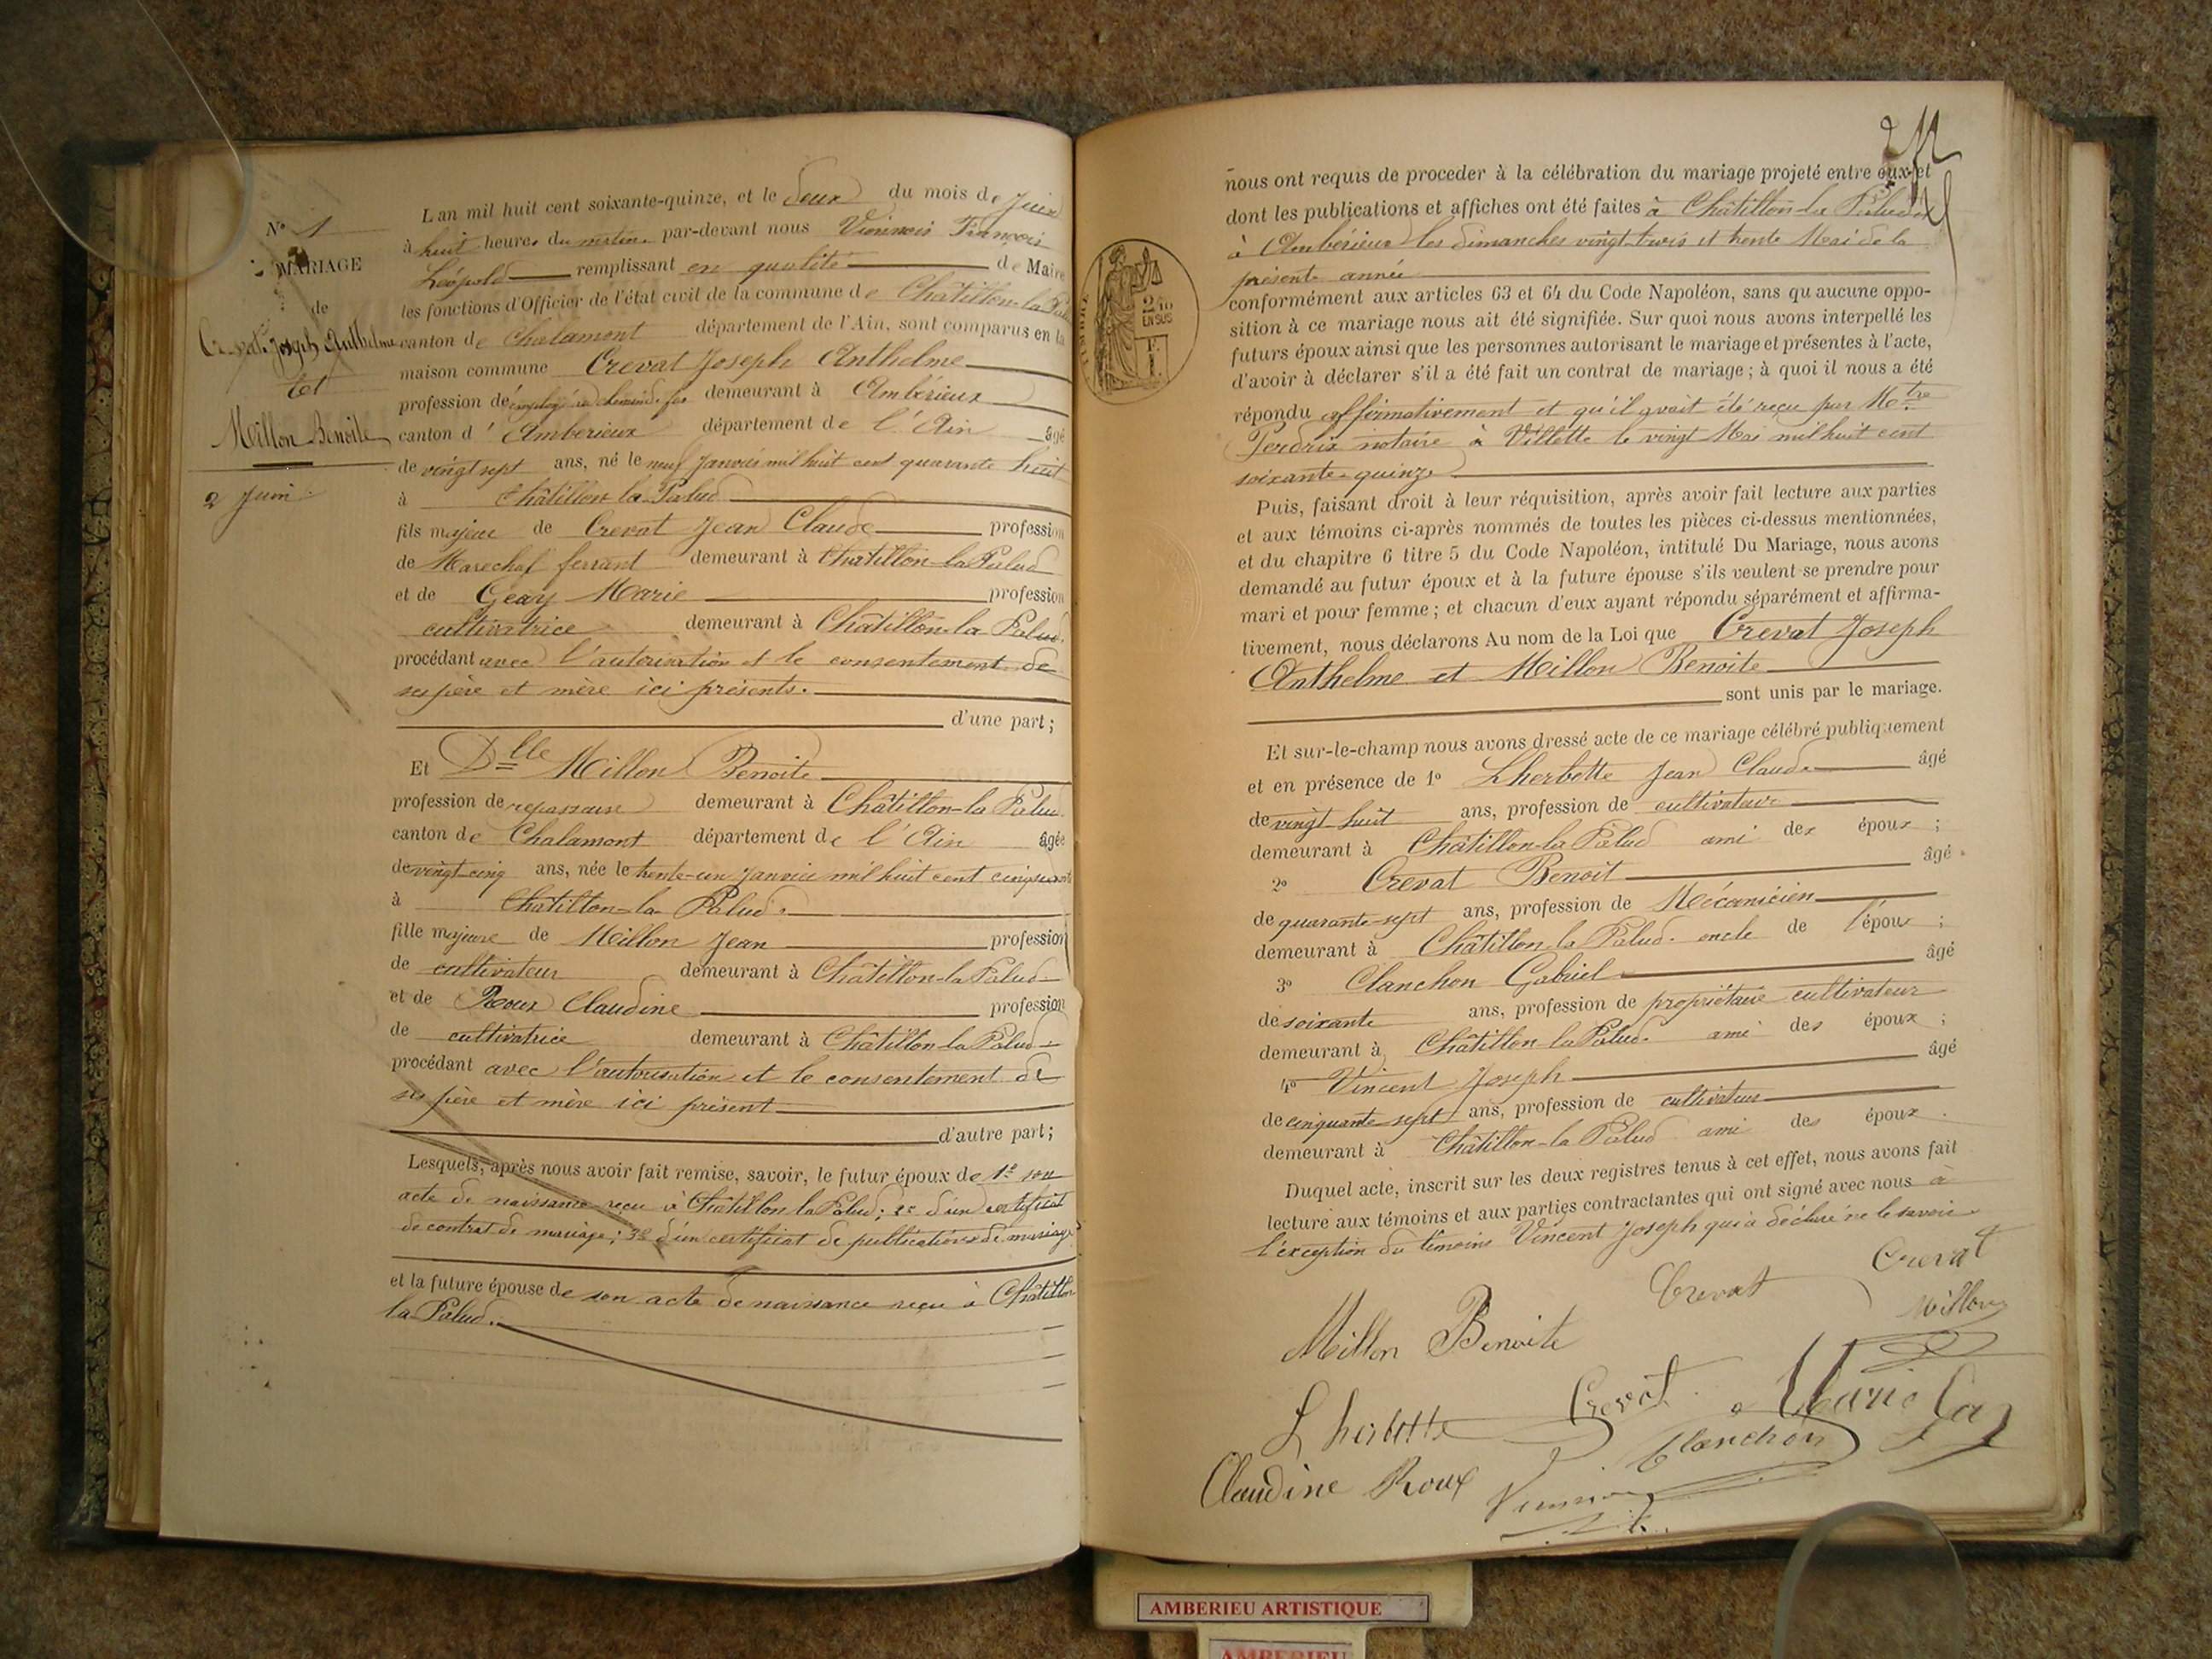 N° 1
MARIAGE
de
Crevat Joseph Anthelme
et
Millon Benoite
2 Juin
L an mil huit cent soixante-quinze, et le deux du mois de Juin
à huit heures du matin par-devant nous Vionnois François
Léopold remplissant en qualité de Maire
les fonctions d'Officier de l'état civil de la commune de Châtillon-la-Palud
canton de Chalamont département de l'Ain, sont comparus en la
maison commune Crevat Joseph Anthelme
profession d'employé au chemin de fer demeurant à Ambérieux
canton d'Ambérieux département de l'Ain âgé
de vingt sept ans, né le neuf Janvier mil huit cent quarante huit
à Châtillon-la-Palud
fils majeur de Crevat Jean Claude profession
de Marechal ferrant demeurant à Châtillon-la-Palud
et de Geay Marie profession
cultivatrice demeurant à Châtillon-la-Palud.
procédant avec l'autorisation et le consentement de
ses père et mère ici présents.
d'une part;
Et Dlle Millon Benoite
profession de repasseuse demeurant à Châtillon-la-Palud
canton de Chalamont département de l'Ain âgée
de vingt-cinq ans, née le trente-un Janvier mil huit cent cinquante
à Châtillon-la-Palud.
fille majeure de Millon Jean profession
de cultivateur demeurant à Châtillon-la-Palud
et de Roux Claudine profession
de cultivatrice demeurant à Châtillon-la-Palud
procédant avec l'autorisation et le consentement de
ses père et mère ici présent
d'autre part;
Lesquels, après nous avoir fait remise, savoir, le futur époux de 1° son
acte de naissance reçu à Châtillon la Palud; 2° d'un certificat
de contrat de mariage; 3° d'un certificat de publications de mariage
et la future épouse de son acte de naissance reçu à Châtillon
la Palud.
nous ont requis de proceder à la célébration du mariage projeté entre eux et
dont les publications et affiches ont été faites à Châtillon-la-Palud et
à Ambérieux les dimanches vingt-trois et trente Mai de la
présente année
conformément aux articles 63 et 64 du Code Napoléon, sans qu aucune oppo-
sition à ce mariage nous ait été signifiée. Sur quoi nous avons interpellé les
futurs époux ainsi que les personnes autorisant le mariage et présentes à l'acte,
d'avoir à déclarer s'il a été fait un contrat de mariage; à quoi il nous a été
répondu affirmativement et qu'il avait été reçu par Metre
Perdrix notaire à Villette le vingt Mai mil huit cent
soixante-quinze
Puis, faisant droit à leur réquisition, après avoir fait lecture aux parties
et aux témoins ci-après nommés de toutes les pièces ci-dessus mentionnées,
et du chapitre 6 titre 5 du Code Napoléon, intitulé Du Mariage, nous avons
demandé au futur époux et à la future épouse s'ils veulent se prendre pour
mari et pour femme; et chacun d'eux ayant répondu séparément et affirma-
tivement, nous déclarons Au nom de la Loi que Crevat Joseph
Anthelme et Millon Benoite
sont unis par le mariage.
Et sur-le-champ nous avons dressé acte de ce mariage célébré publiquement
et en présence de 1° Lherbette Jean Claude âgé
de vingt huit ans, profession de cultivateur
demeurant à Châtillon-la-Palud ami des époux;
2° Crevat Benoit âgé
de quarante-sept ans, profession de Mécanicien
demeurant à Châtillon-la-Palud. oncle de l'époux;
3° Clanchon Gabriel âgé
de soixante ans, profession de propriétaire cultivateur
demeurant à Châtillon-la-Palud. ami des époux;
4° Vincent Joseph âgé
de cinquante-sept ans, profession de cultivateur
demeurant à Châtillon-la-Palud ami des époux.
Duquel acte, inscrit sur les deux registres tenus à cet effet, nous avons fait
lecture aux témoins et aux parties contractantes qui ont signé avec nous à
l'exception du témoins Vincent Joseph qui a déclaré ne le savoir
Crevat
Crevat
Millon
Millon Benoite
Crevat
Marie
Lherbette
Clanchon
Claudine Roux
TIMBRE
2/10
EN SUS
AMBERIEU ARTISTIQUE
AMBERIEU